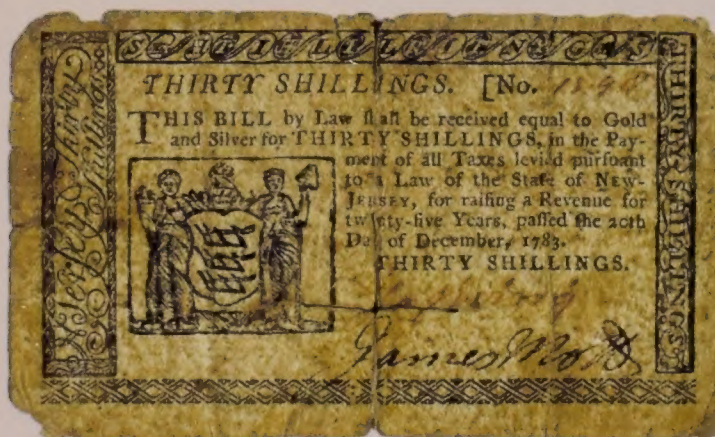 THIRTY SHILLINGS. [No.
THIS BILL by Law ſhall be received equal to Gold
and Silver for THIRTY SHILLINGS, in the Pay-
ment of all Taxes levied purſuant
to a Law of the State of NEW-
JERSEY, for raiſing a Revenue for
twenty-five Years, paſſed the 20th
Day of December, 1783.
THIRTY SHILLINGS.
James Mott
Jerſey Thirty
Shillings
THIRTY SHILLINGS